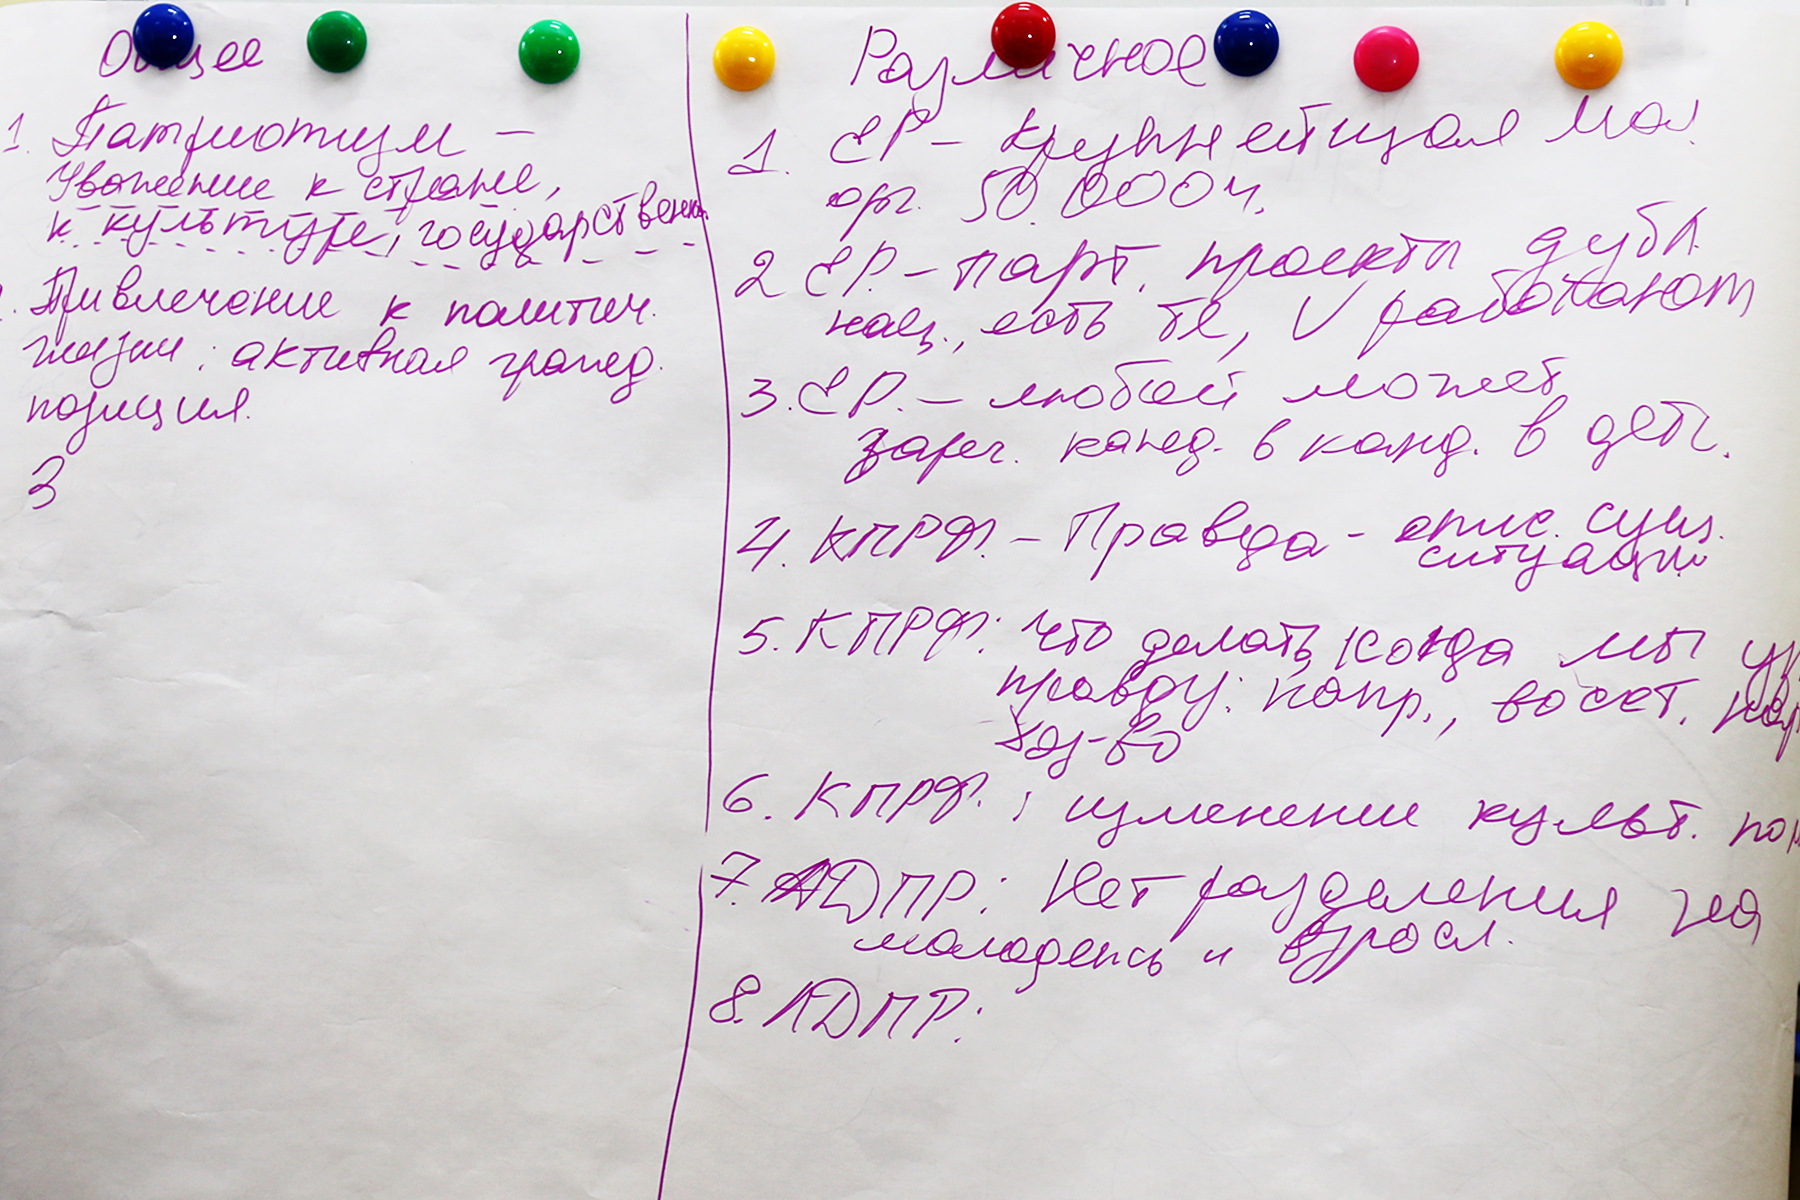 Общее
1. Патриотизм –
Уважение к стране,
к культуре, государственн.
Привлечение к политич.
жизни: активная гражд.
позиция.
3
Различное
1. ЕР – Крупнейшая мол.
орг. 50.000ч.
2 ЕР. – парт. проекты дубл.
нац., есть те, V работают
3. ЕР. – любой может
зарег. канд. в канд. в деп.
4. КПРФ. – Правда – опис. сущ.
ситуации
5. КПРФ: что делать, когда мы
правду: напр., восст.
хоз-во
6. КПРФ: изменение культ.
7. ЛДПР: Нет разделения на
молодежь и взросл.
8. ЛДПР: